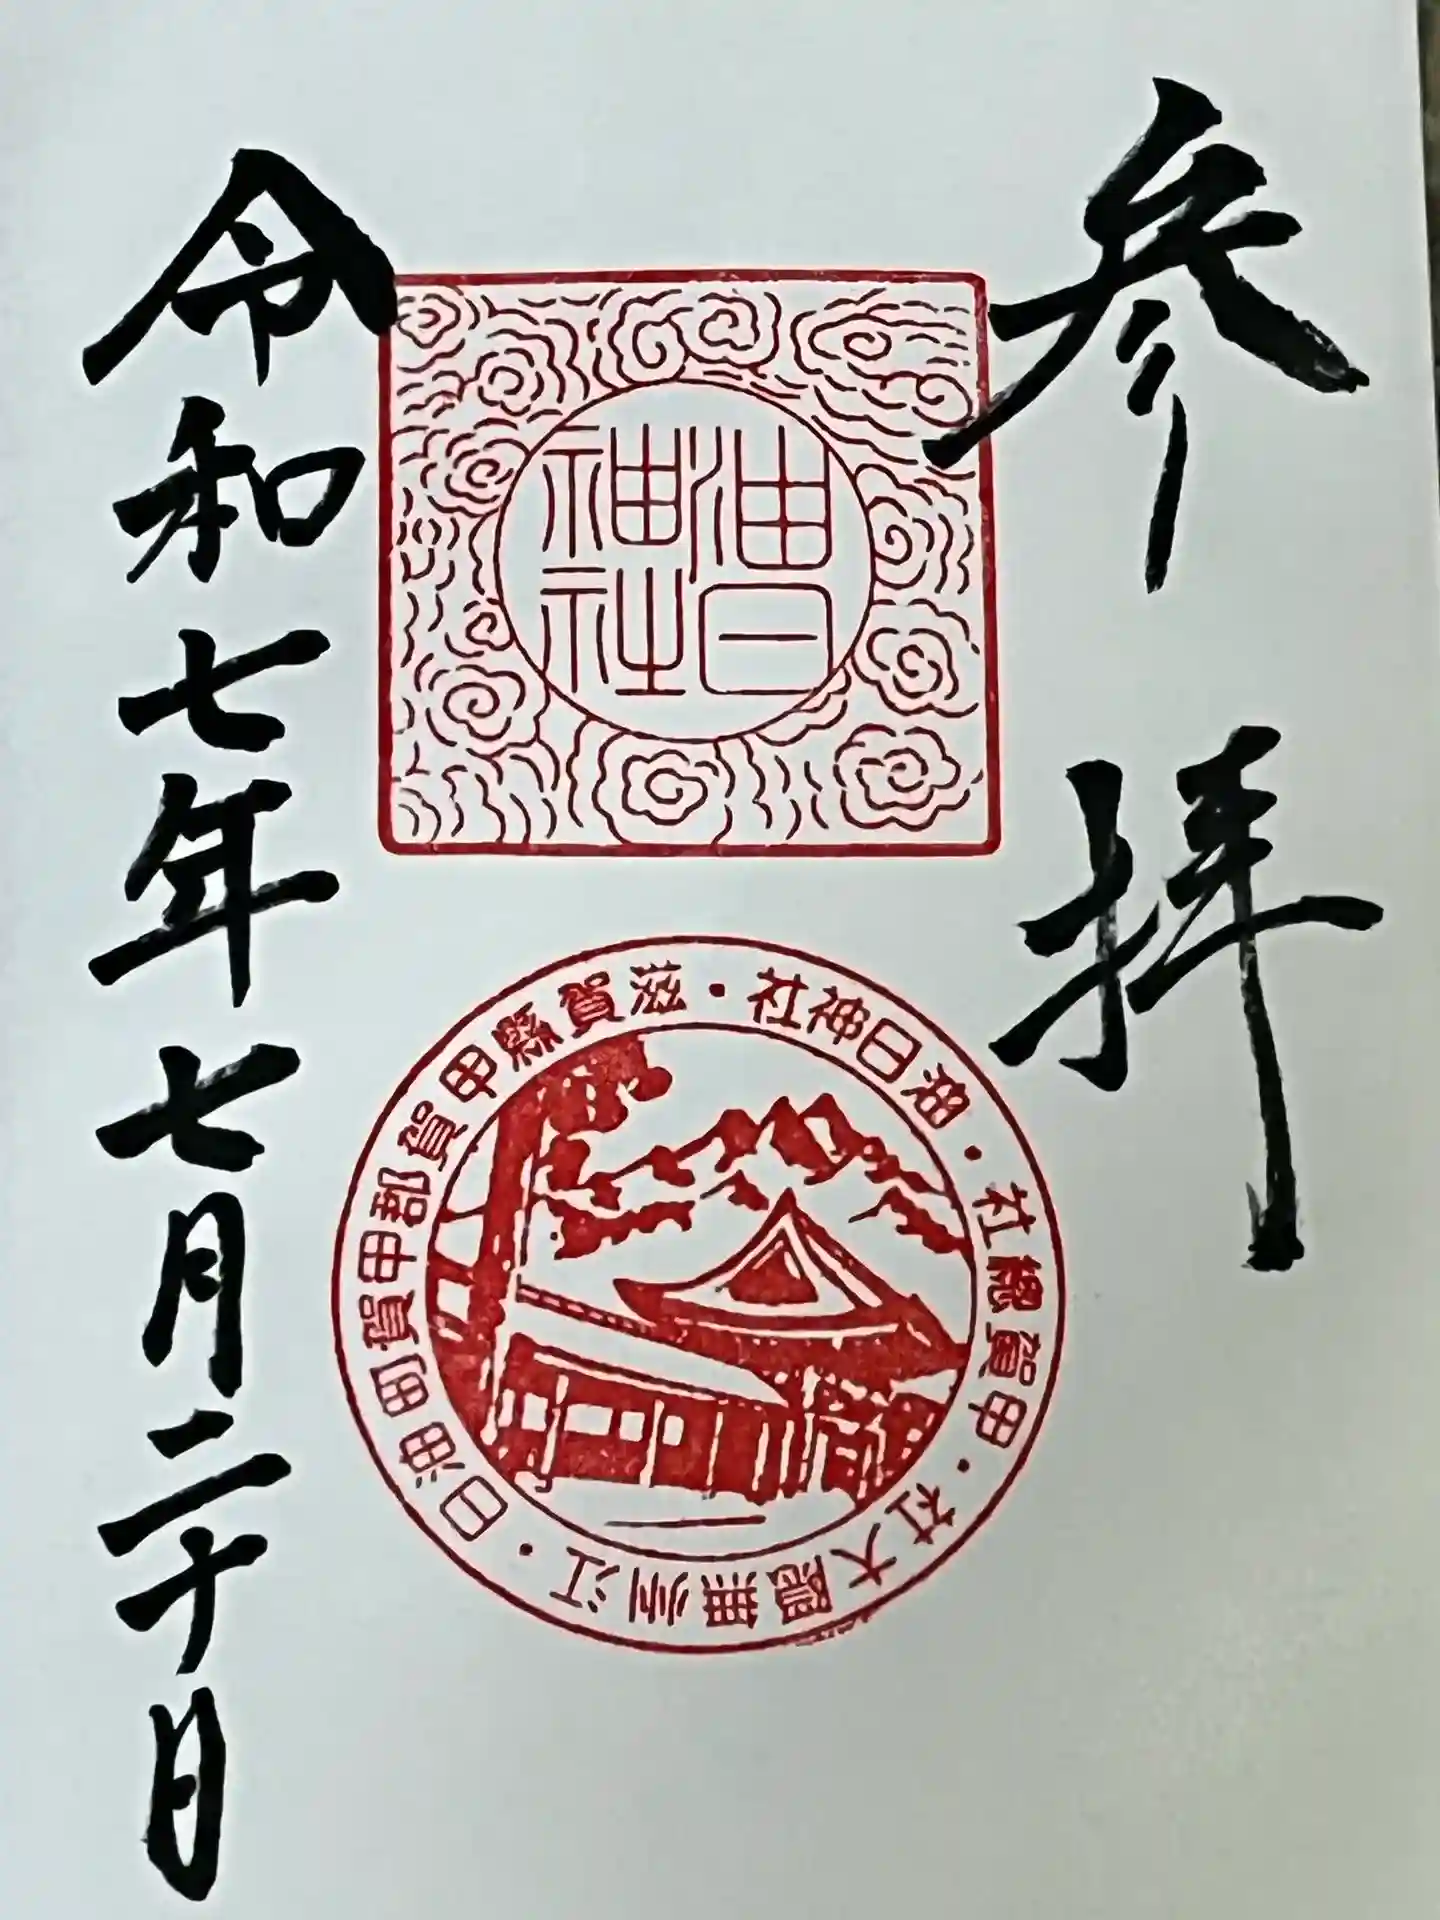 参拝
油日
神社
滋賀縣甲賀郡甲賀町油日・江州無隈大社・甲賀總社・油日神社・
令和七年七月二十日